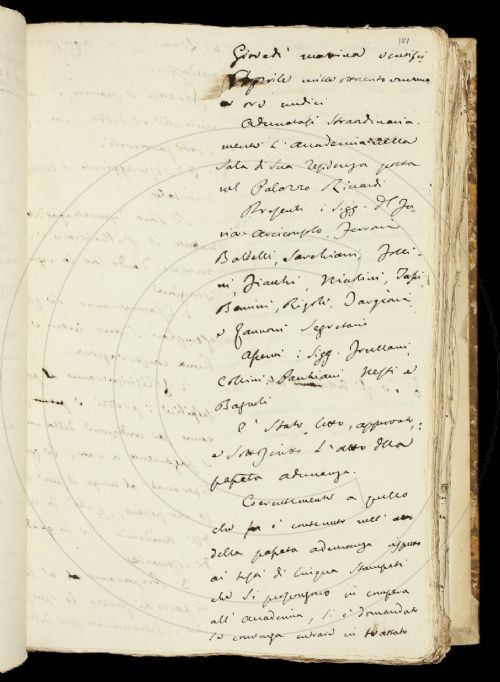 181
Giovedì mattina ventisei
Aprile mille ottocento ventuno
a ore undici
Adunatasi straordinaria-
mente l'Accademia nella
Sala di sua residenza posta
nel Palazzo Riccardi
Presenti i Sigg.
Arciconsolo, Ferroni
Baldelli, Sarchiani,
ni, Fiacchi, Nicolini,
Bencini, Rigoli, Targioni
e Zannoni Segretario
Assenti i Sigg. Frullani,
Collini, Nesti e
Bagnoli
È stato letto, approvato,
e sottoscritto l'atto della
passata adunanza.
Coerentemente a quello
che è contenuto nell'
della passata adunanza rapporto
ai testi di lingua stampati
che si propongono in compra
all'Accademia, si è domandato
se convenga entrare in trattato